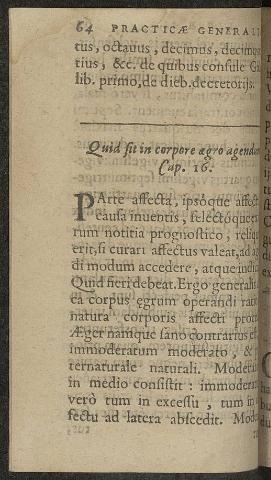 64 PRACTICÆ GENERALI
tus, octauus, decimus, decimqu
tius, &c. de quibus consule Ga
lib. primo, de dieb. decretorijs.
Quid sit in corpore ægro agendum
Cap. 16.
PArte affecta, ipsóque affect
causa inuentis, selectóque
rum notitia prognostico, reliq
erit, si curari affectus valeat, ad a
di modum accedere, atque indi
Quid fieri debeat. Ergo generali
ea corpus egrum operandi ratio
natura corporis affecti prom
Æger namque sano contrarius e
immoderatum moderato, &
ternaturale naturali. Modera
in medio consistit: immoderat
verò tum in excessu, tum in
fectu ad latera abscedit. Mod